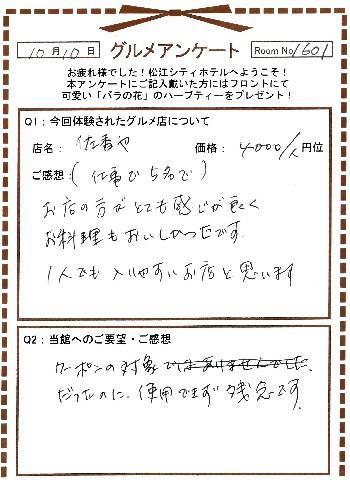 10月10日 グルメアンケート Room No 1601
お疲れ様でした！松江シティホテルへようこそ！
本アンケートにご記入戴いた方にはフロントにて
可愛い「バラの花」のハーブティーをプレゼント！
Q1：今回体験されたグルメ店について
店名： 佐香や 価格： 4000/人 円位
ご感想：(仕事で5名で)
お店の方がとても感じが良く
お料理もおいしかったです。
1人でも入りやすいお店と思います
Q2：当館へのご要望・ご感想
クーポンの対象ではありませんでした.
だったのに、使用できず残念です.